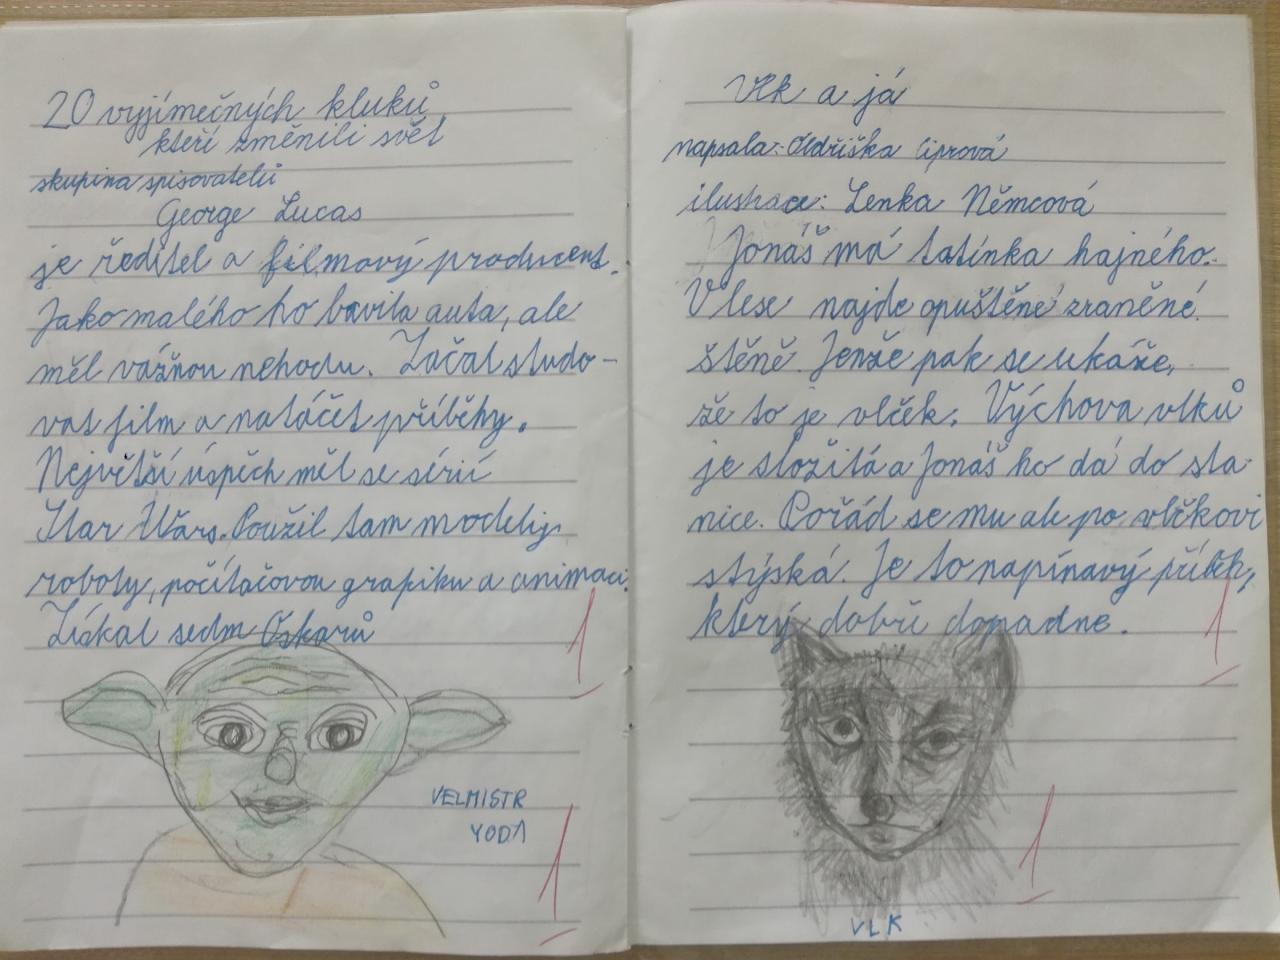 20 vyjímečných kluků
kteří změnili svět
skupina spisovatelů
George Lucas
je ředitel a filmový producent.
Jako malého ho bavila auta, ale
měl vážnou nehodu. Začal studo-
vat film a natáčet příběhy.
Největší úspěch měl se sérií
Star Wars. Použil tam modely,
roboty, počítačovou grafiku a animaci.
Získal sedm Oskarů
1
VELMISTR
YODA
1
Vlk a já
napsala: Oldřiška Ciprová
ilustrace: Lenka Němcová
Jonáš má tatínka hajného.
V lese najde opuštěné zraněné
štěně. Jenže pak se ukáže,
že to je vlček. Výchova vlků
je složitá a Jonáš ho dá do sta-
nice. Pořád se mu ale po vlčkovi
stýská. Je to napínavý příběh,
který dobře dopadne.
1
1
VLK